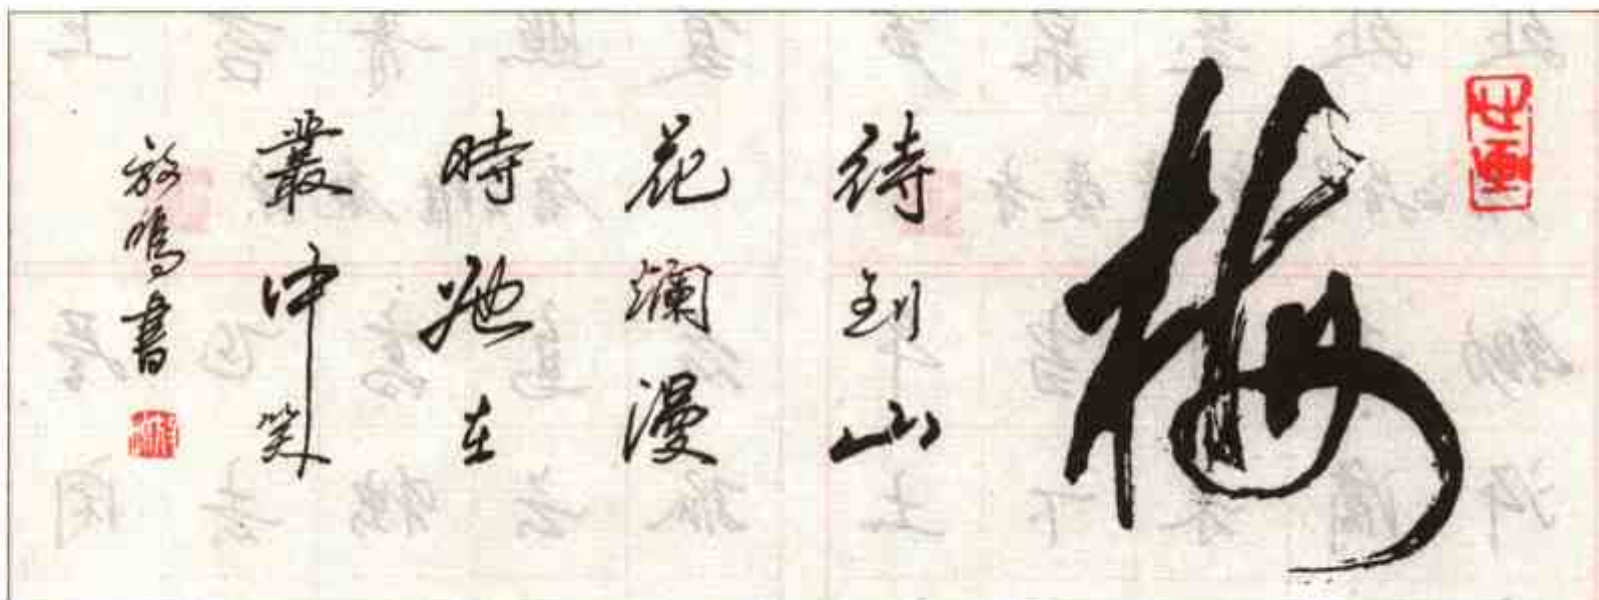 梅
待到山
花瀾漫
時她在
叢中笑
放鳴書